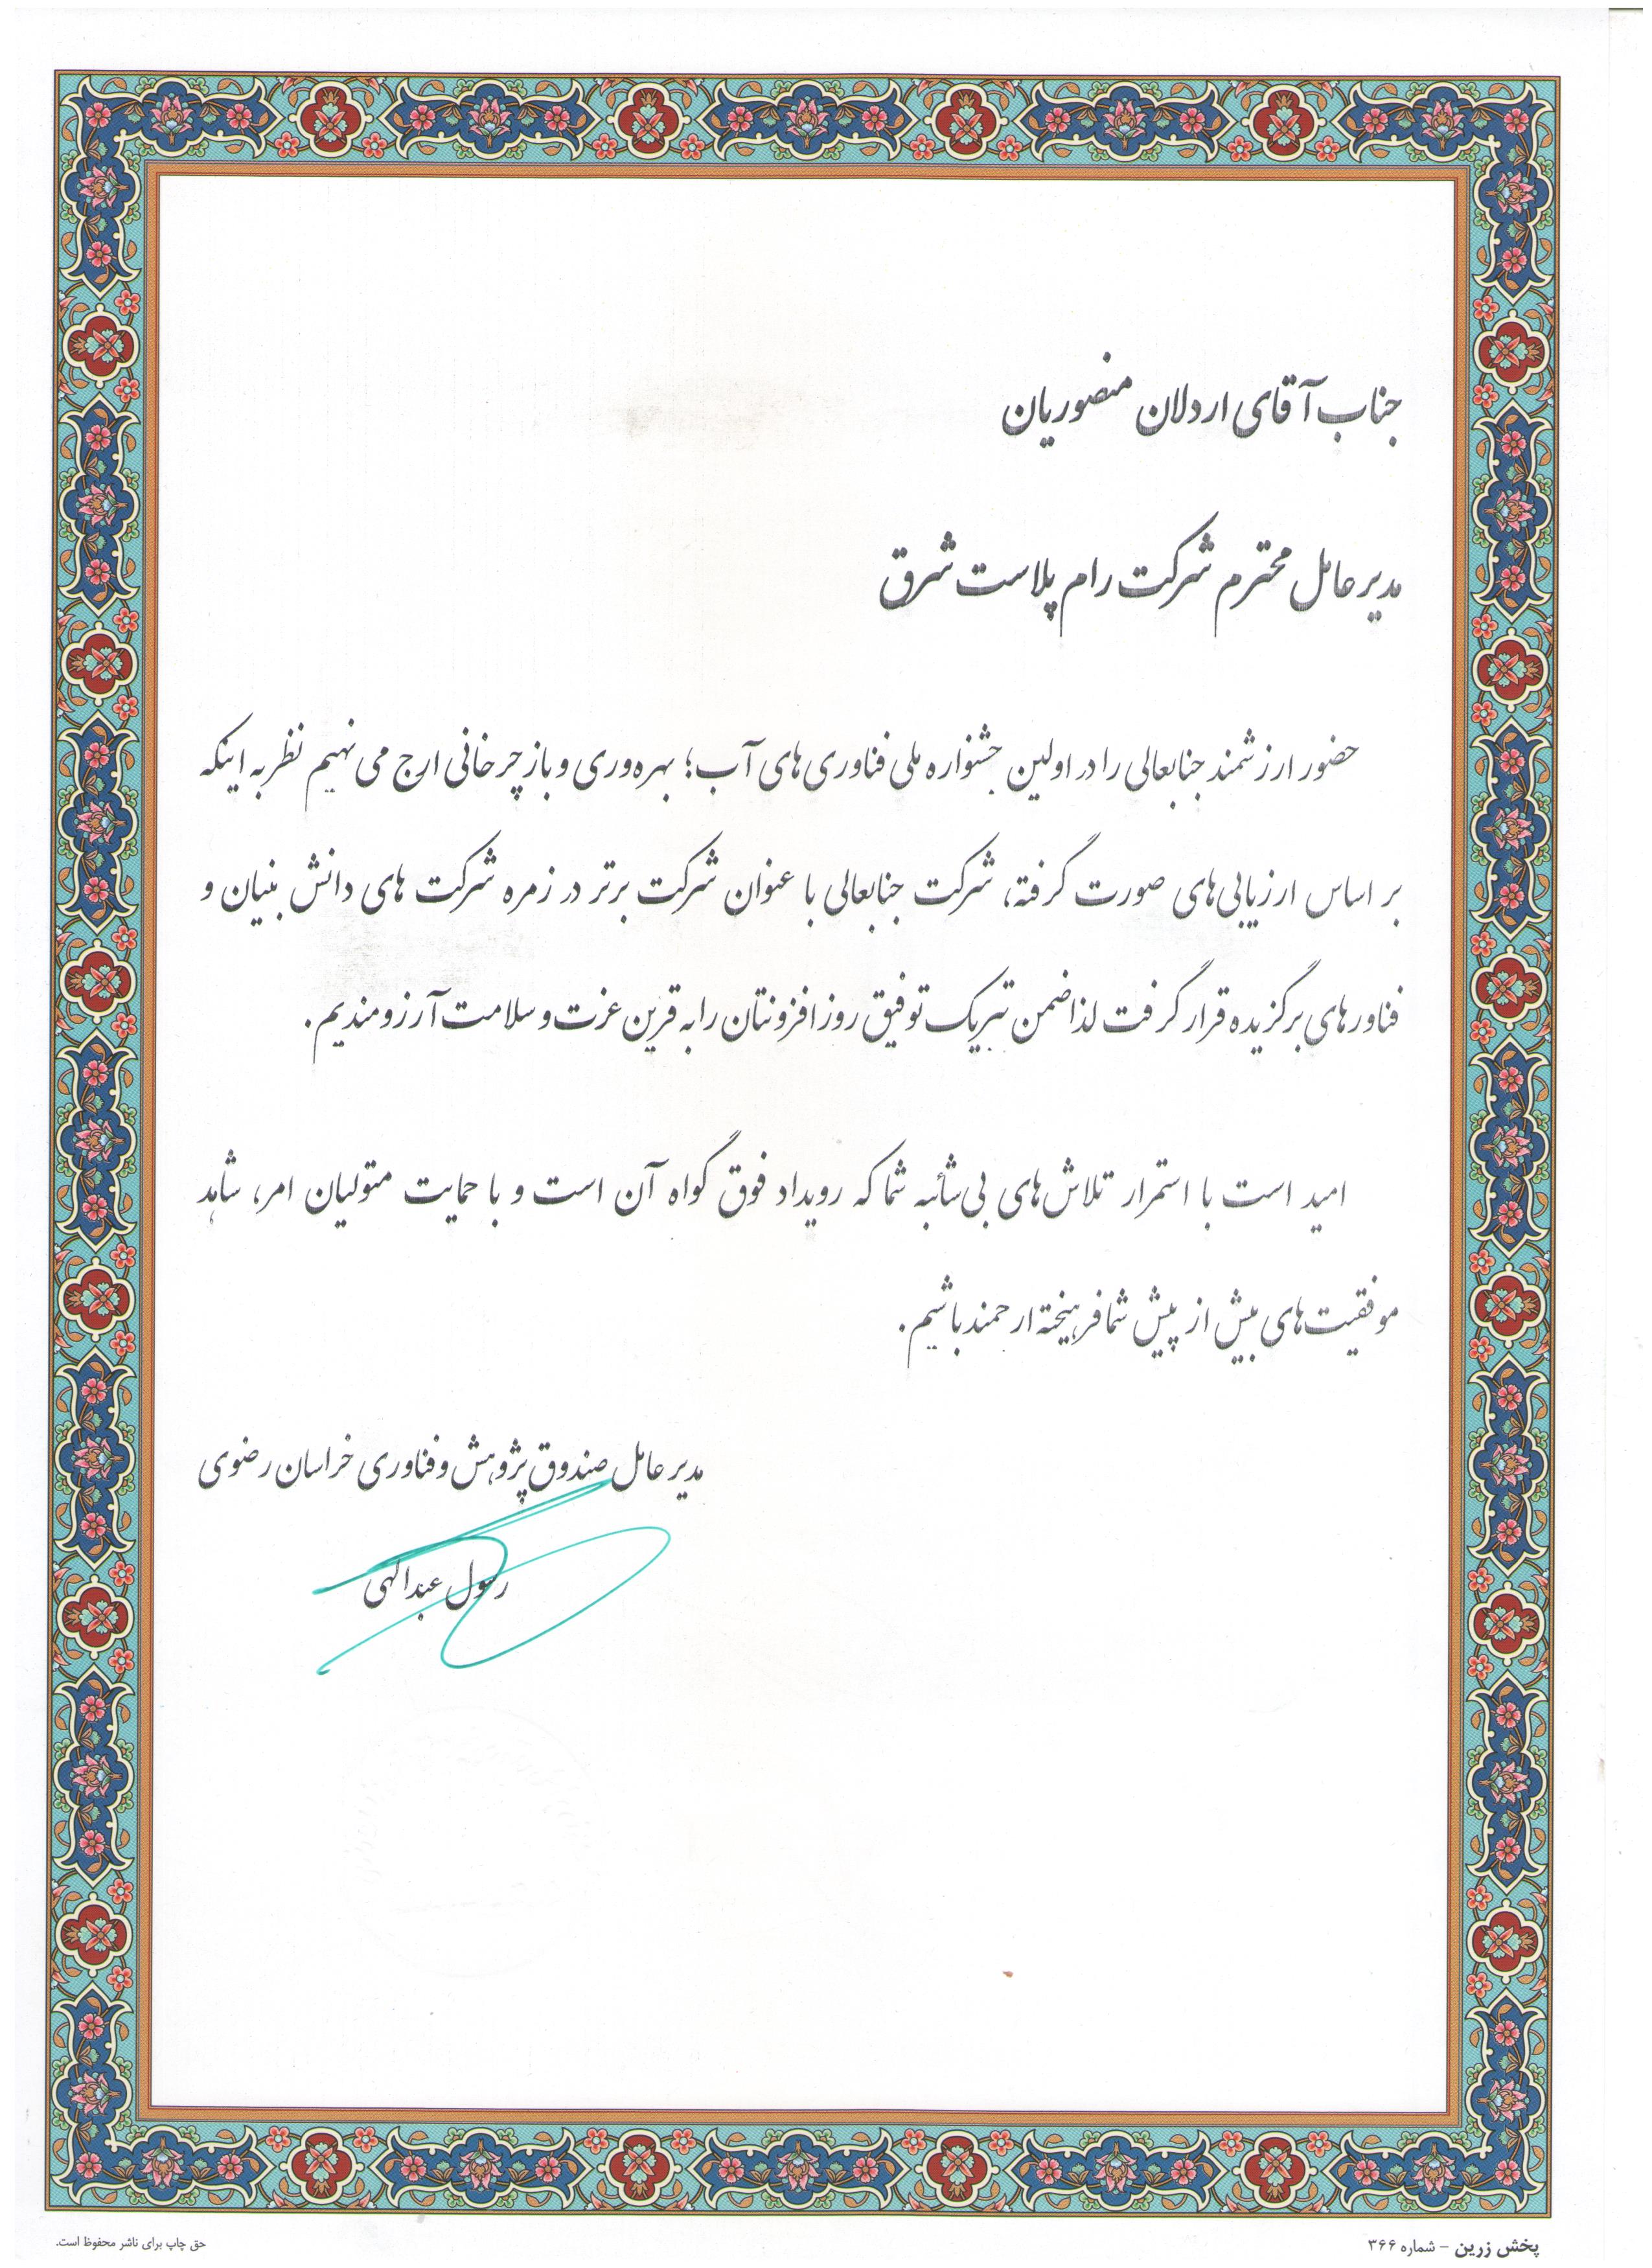 جناب آقای اردلان منصوریان
مدیر عامل محترم شرکت رام پلاست شرق
حضور ارزشمند جنابعالی را در اولین جشنواره ملی فناوری های آب؛ بهره وری و باز چرخانی ارج می نهیم نظر به اینکه
بر اساس ارزیابی های صورت گرفته، شرکت جنابعالی با عنوان شرکت برتر در زمره شرکت های دانش بنیان و
فناورهای برگزیده قرار گرفت لذا ضمن تبریک توفیق روز افزونتان را به قرین عزت و سلامت آرزومندیم.
امید است با استمرار تلاش های بی شائبه شما که رویداد فوق گواه آن است و با حمایت متولیان امر، شاهد
موفقیت های بیش از پیش شما فرهیخته ارجمند باشیم.
مدیر عامل صندوق پژوهش و فناوری خراسان رضوی
رسول عبدالهی
پخش زرین - شماره ۳۶۶
حق چاپ برای ناشر محفوظ است.